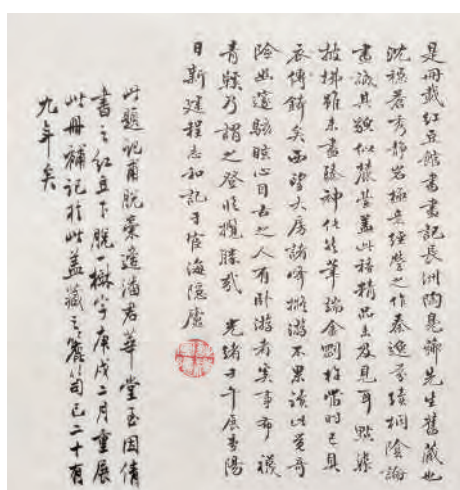 是冊載紅豆館書畫記長洲陶鳧薌先生舊藏也
沈穆蒼秀靜若極意經營之作秦逸芬續桐陰論
畫誠其貌似麓臺蓋此種精品未及見耳點染
披拂雖未盡臻神化然筆端金剛杵當時已具
衣傳鉢矣西望大房諸峰擬游不果讀此覺奇
險幽邃駭眩心目古之人有臥游者矣事布襪
青鞵乃謂之登臨攬勝哉 光緒壬午展重陽
日新建程志和記于宦海隱廬
此題記甫脫藁適潘君華堂至因倩
書之紅豆下脫一樹字庚戌二月重展
此冊補記於此蓋藏之笥已二十有
九年矣